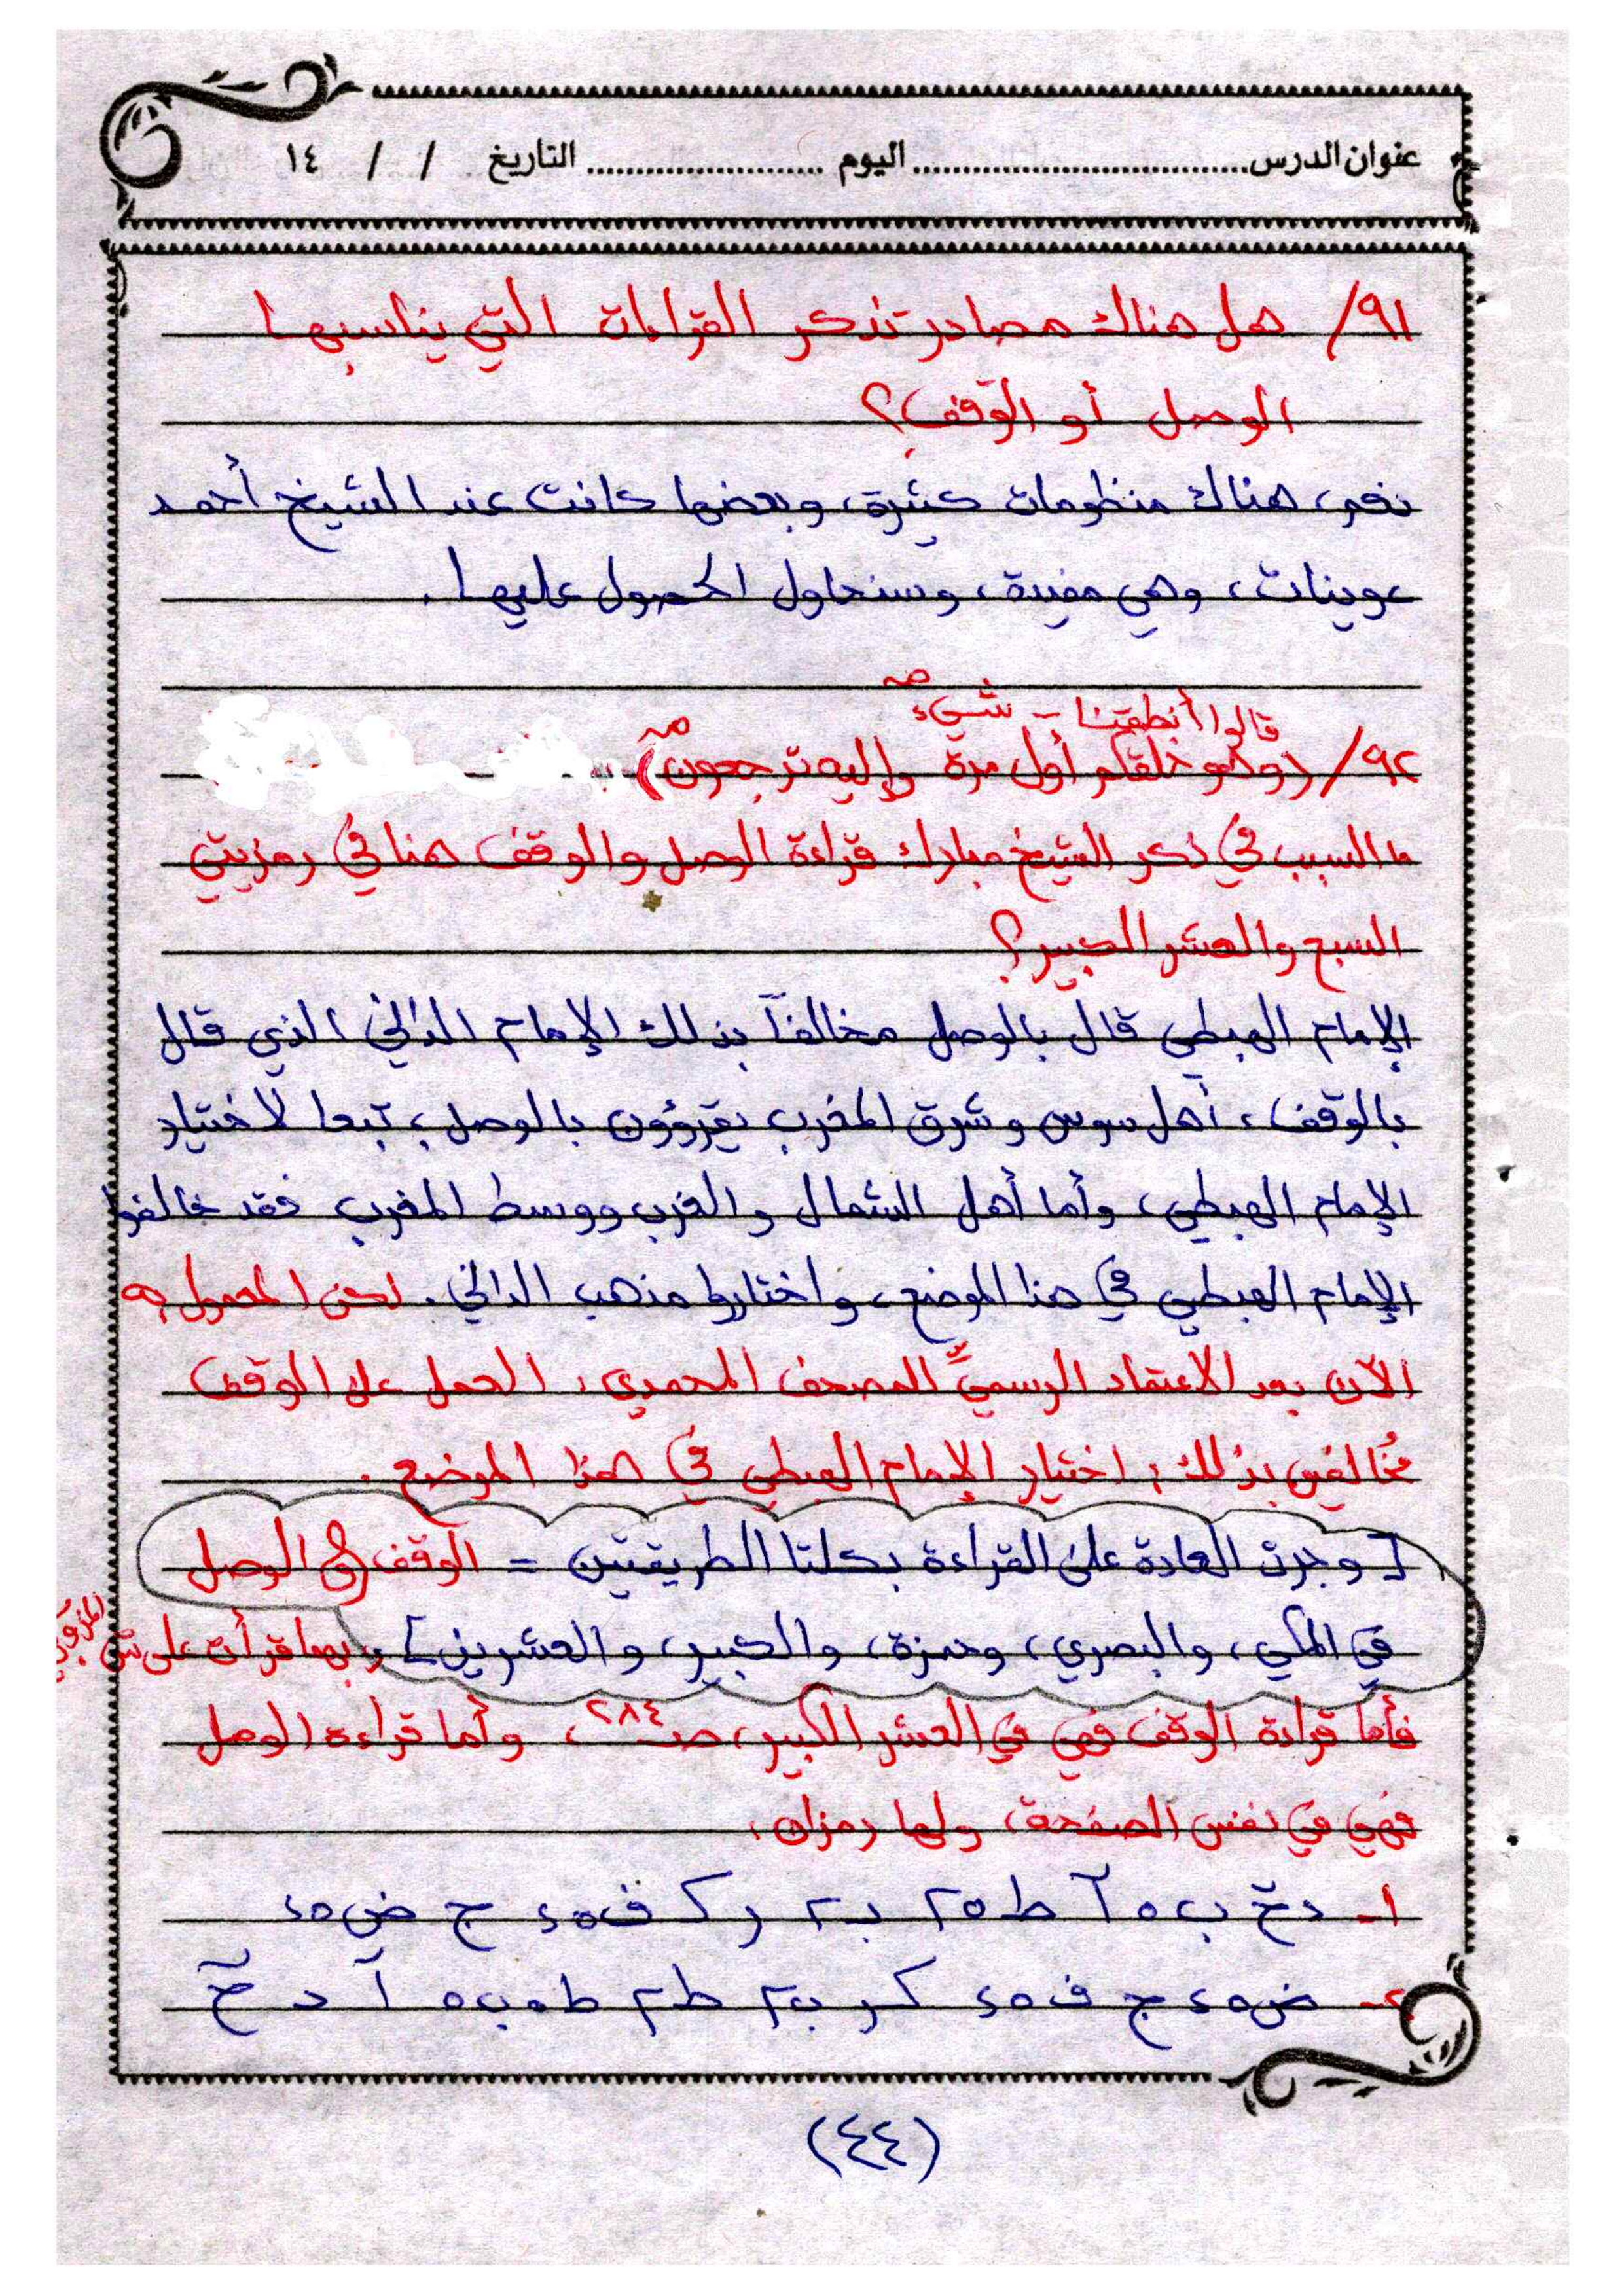 عنوان الدرس................................ اليوم ........................ التاريخ / / ١٤
٩١/ هل هناك مصادر تذكر القراءات التي يناسبها
الوصل أو الوقف؟
نعم، هناك منظومات كثيرة، وبعضها كانت عند الشيخ أحمد
عوينات، وهي مفيدة، وسنحاول الحصول عليها.
صـ
قالوا أنطقنا - شيء
٩٢/ (وهو خلقكم أول مرة وإليه ترجعون) صـ
ما السبب في ذكر الشيخ مبارك قراءة الوصل والوقف هنا في رمزيتي
السبع والعشر الكبير؟
الإمام الهبطي قال بالوصل مخالفاً بذلك الإمام الداني الذي قال
بالوقف، أهل سوس وشرق المغرب يقرؤون بالوصل، تبعا لاختيار
الإمام الهبطي، وأما أهل الشمال والغرب ووسط المغرب فقد خالفوا
الإمام الهبطي في هذا الموضع، واختاروا مذهب الداني. لكن المعمول به
الآن بعد الاعتماد الرسميِّ للمصحف المحمدي، العمل على الوقف
مُخالفين بذلك؛ اختيار الإمام الهبطي في هذا الموضع.
[وجرت العادة على القراءة بكلتا الطريقتين = الوقف، الوصل
في المكي، والبصري، وحمزة، والكبير، والعشرين] وبهما قرأت على
فأما قراءة الوقف فهي في العشر الكبير، صـ ٢٨٤، وأما قراءة الوصل
فهي في نفس الصفحة، ولها رمزان:
١- دخ ب ٥ آ ط ٢٥ بـ٢ ر ك ف ٤٥ ج ض ٤٥
٢- ض ٤٥ ج ف ٤٥ ك ر بـ٢ ط٢ ط ٥ ب ٥ آ د خ
(٤٤)